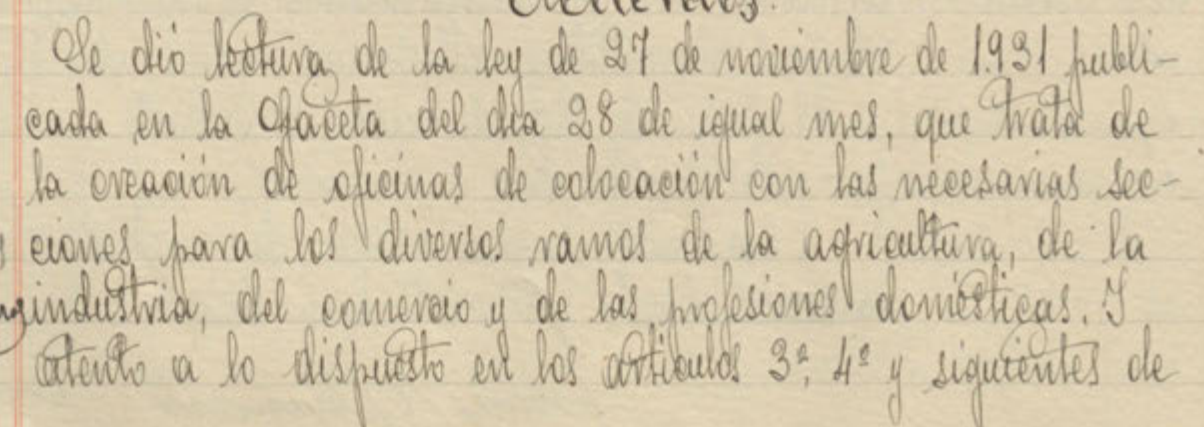 Se dió lectura de la ley de 27 de noviembre de 1.931 publi-
cada en la Gaceta del día 28 de igual mes, que trata de
la creación de oficinas de colocación con las necesarias sec-
ciones para los diversos ramos de la agricultura, de la
industria, del comercio y de las profesiones domésticas. Y
atento a lo dispuesto en los artículos 3º, 4º y siguientes de